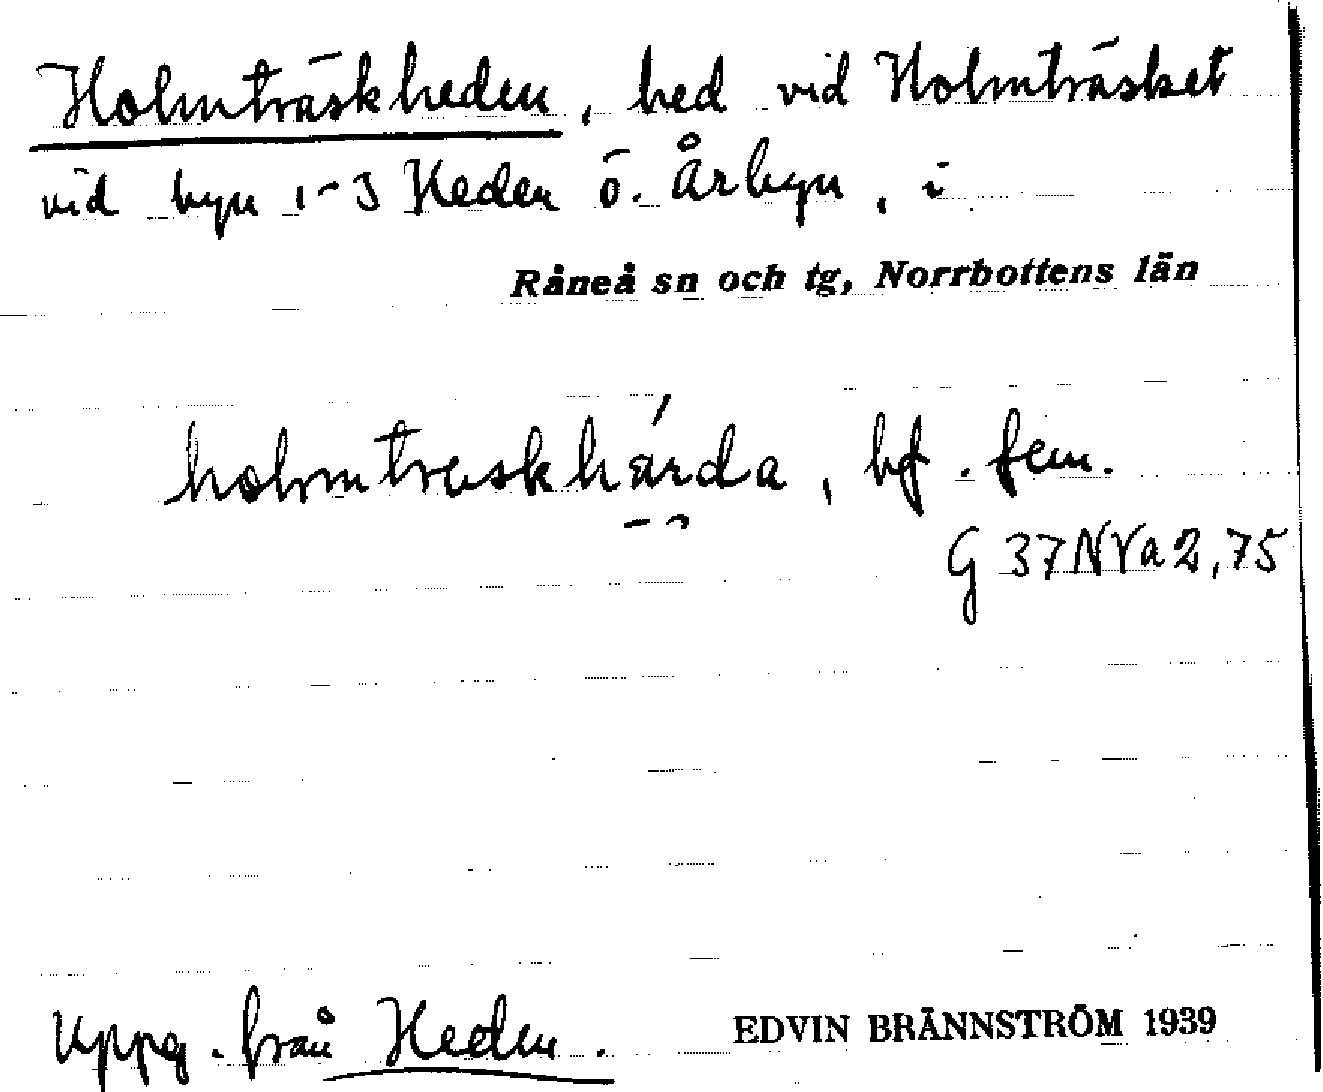 Holmträskheden, hed vid Holmträsket
vid byn 1-3 Heden ö. Årbyn, i
Råneå sn och tg, Norrbottens län
holmtraskhárda, bf. fem.
G 37 NVa 2,75
Uppg. från Heden.
EDVIN BRÄNNSTRÖM 1939